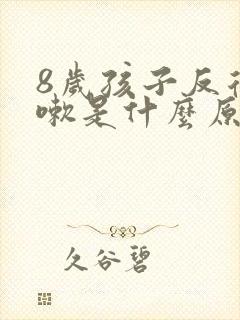 8歲孩子反復
嗽是什麼原
久谷碧